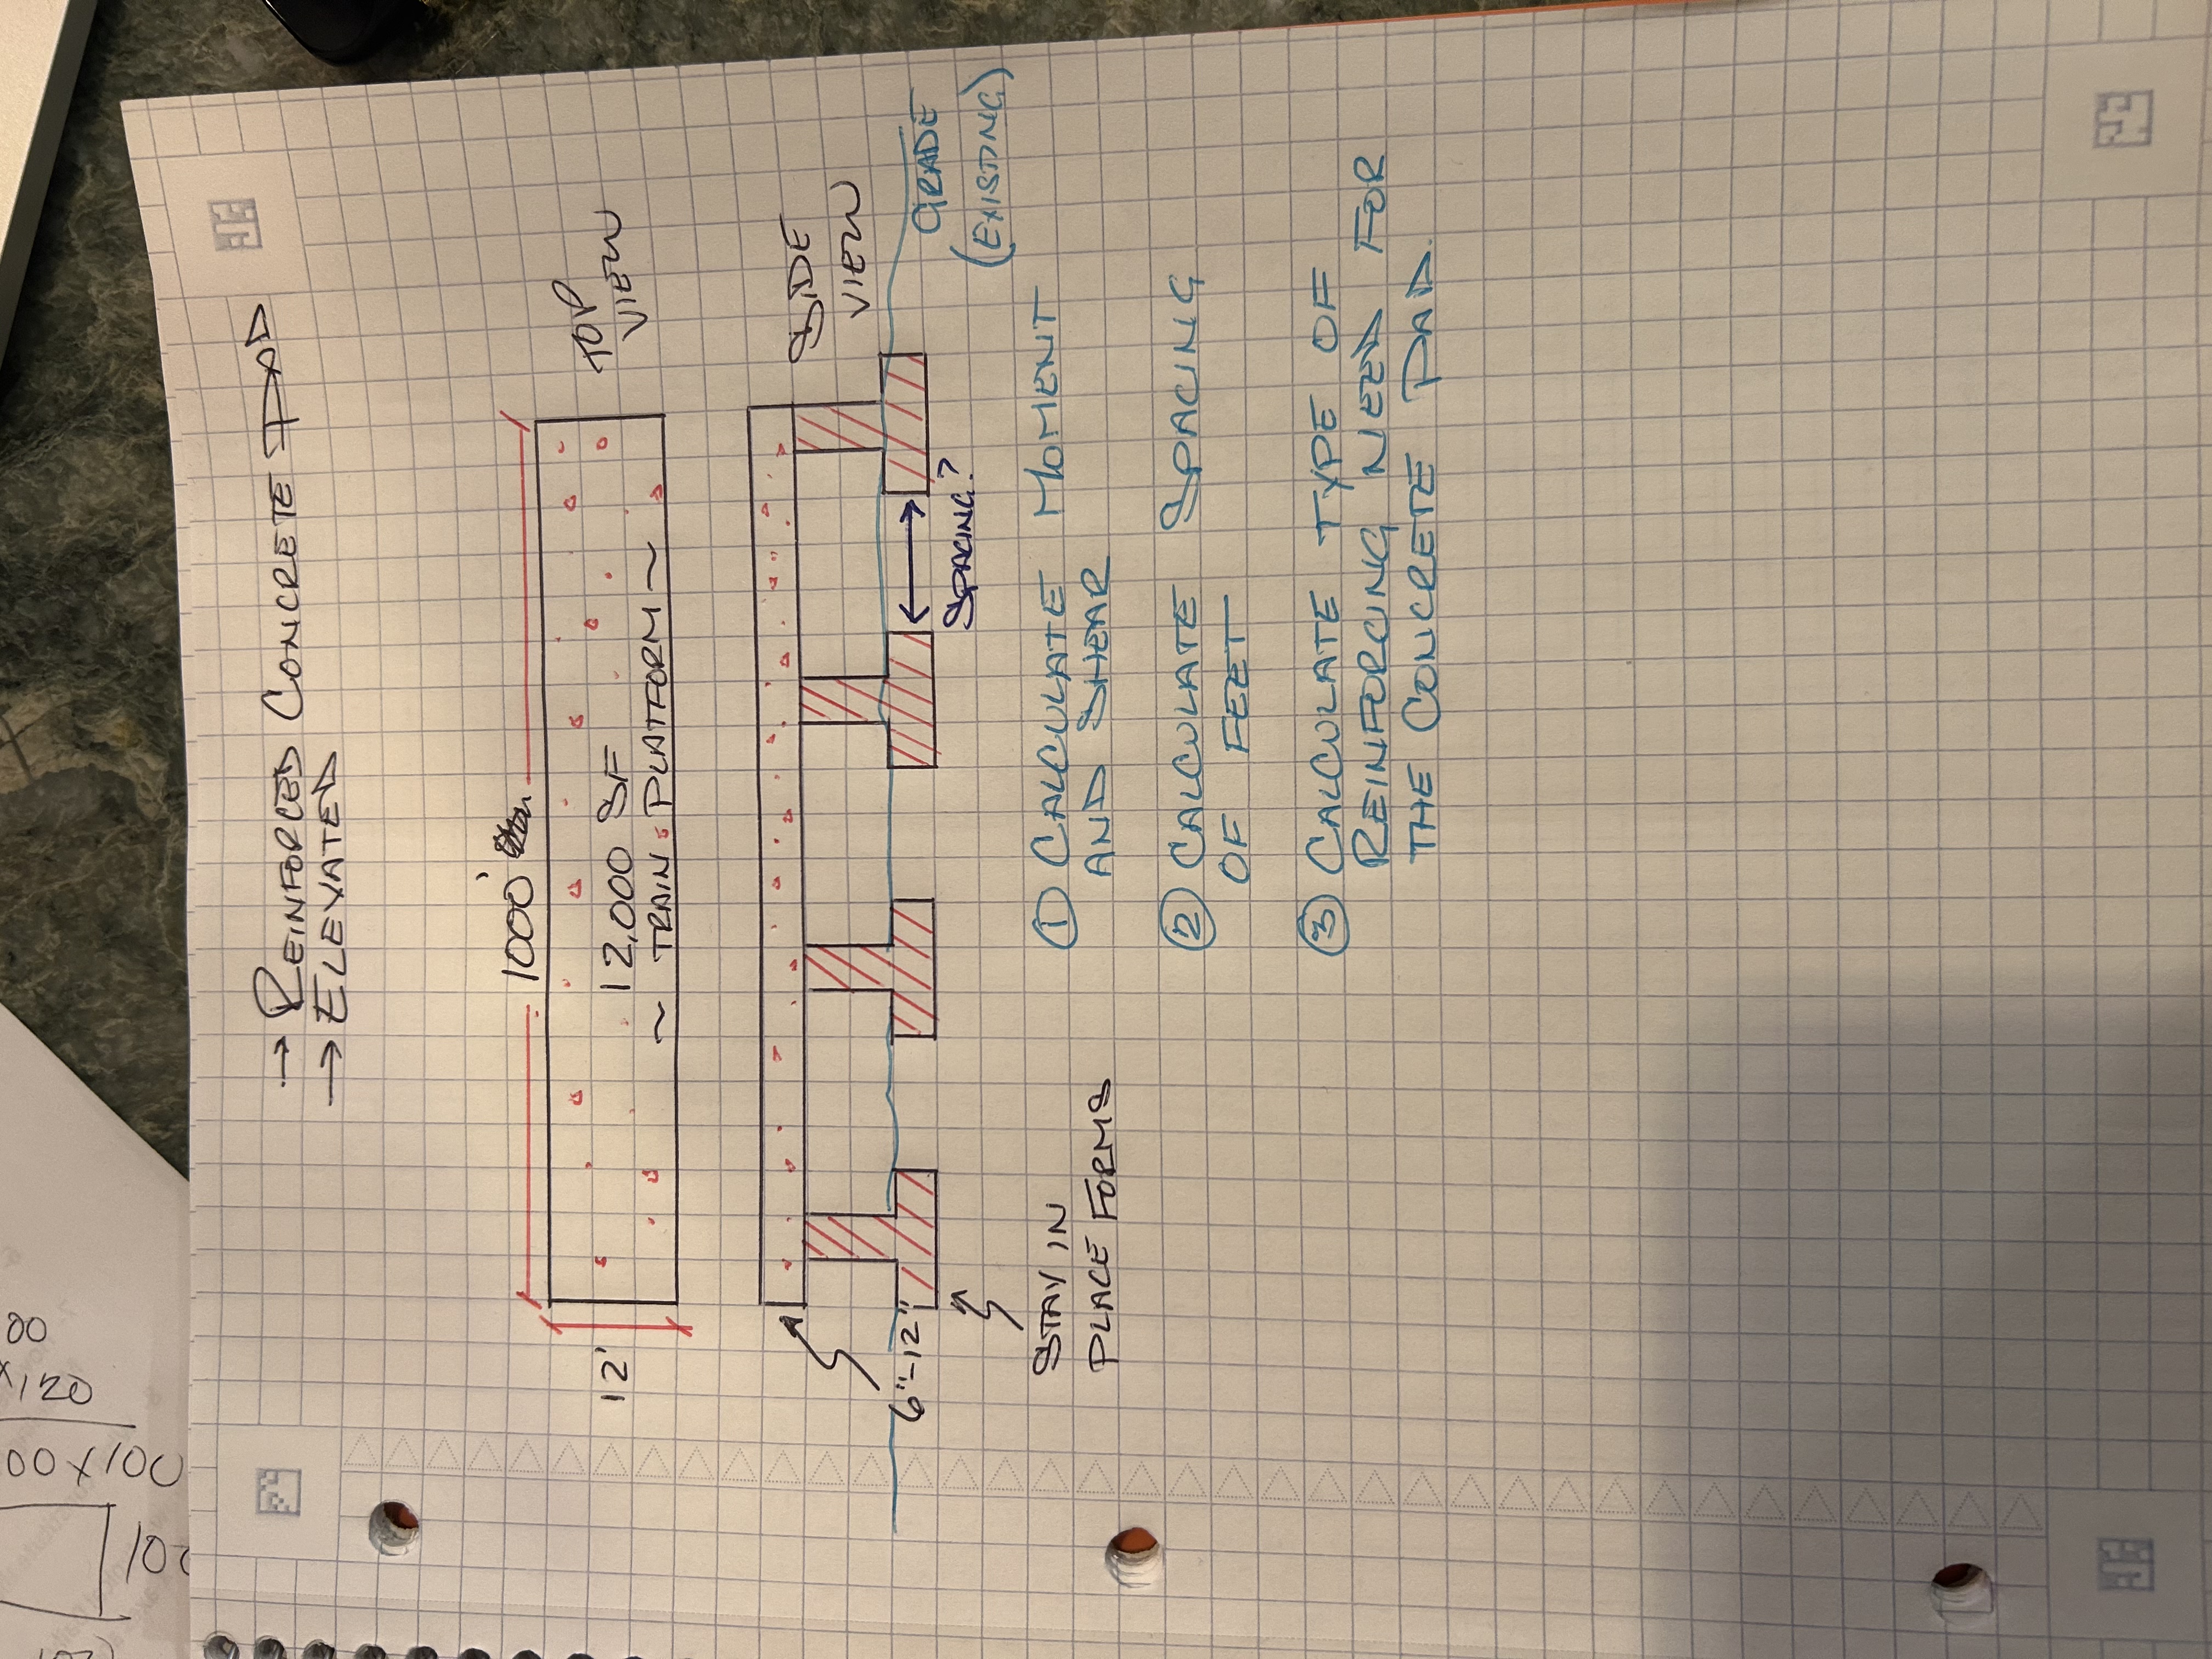 → REINFORCED CONCRETE PAD
→ ELEVATED
1000'
12'
12,000 SF
~ TRAIN PLATFORM ~
TOP
VIEW
SIDE
VIEW
GRADE
(EXISTING)
6"-12"
SPACING?
STAY IN
PLACE FORMS
① CALCULATE MOMENT
AND SHEAR
② CALCULATE SPACING
OF FEET
③ CALCULATE TYPE OF
REINFORCING NEED FOR
THE CONCRETE PAD.
00
x120
00x100